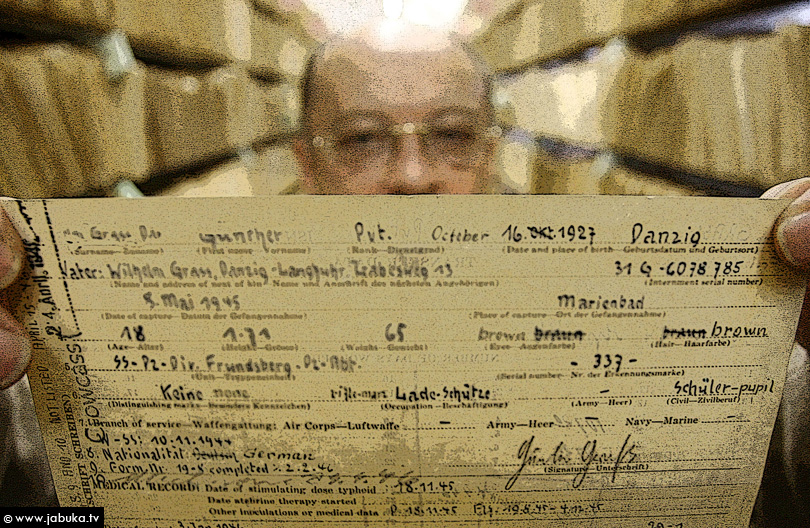 Grass Günther Pvt. October 16. Okt. 1927 Danzig
(Surname—Zuname) (First name—Vorname) (Rank—Dienstgrad) (Date and place of birth—Geburtsdatum und Geburtsort)
Vater: Wilhelm Grass, Danzig-Langfuhr, Labesweg 13 31 G -6078785
(Name and address of next of kin—Name und Anschrift des nächsten Angehörigen) (Internment serial number)
8. Mai 1945 Marienbad
(Date of capture—Datum der Gefangennahme) (Place of capture—Ort der Gefangennahme)
18 1.71 65 brown braun braun brown
(Age—Alter) (Height—Grösse) (Weight—Gewicht) (Eyes—Augenfarbe) (Hair—Haarfarbe)
SS-Pz-Div. Frundsberg. Pz. Abt. - 337 -
(Unit—Truppeneinheit) (Serial number—Nr. der Erkennungsmarke)
Keine none Lade-Schütze - Schüler-pupil
(Distinguishing marks—Besondere Kennzeichen) (Occupation—Beschäftigung) (Army—Heer) (Civil—Zivilberuf)
7. Branch of service—Waffengattung: Air Corps—Luftwaffe - Army—Heer Navy—Marine -
W-SS: 10.11.1944
8. Nationalität: German
Form Nr. 19-8 completed 2.2.46
(Signature—Unterschrift)
MEDICAL RECORD: Date of stimulating dose typhoid 18.11.45
Date atebrine therapy started
Other inoculations or medical data
© www.jabuka.tv